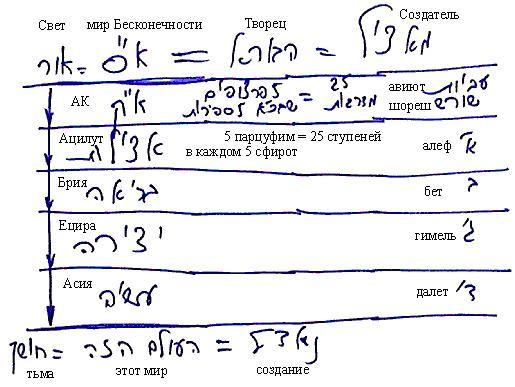 Свет мир Бесконечности Творец Создатель
אור = א"ס = הבורא = מאציל
АК א"ק 5 פרצופים = 25 מדרגות авиют עביות
שבכ"א 5 ספירות шореш שורש
Ацилут אצילות 5 парцуфим = 25 ступеней алеф א'
в каждом 5 сфирот
Брия בריאה бет ב'
Ецира יצירה гимель ג'
Асия עשיה далет ד'
חושך = העולם הזה = נאצל
тьма этот мир создание